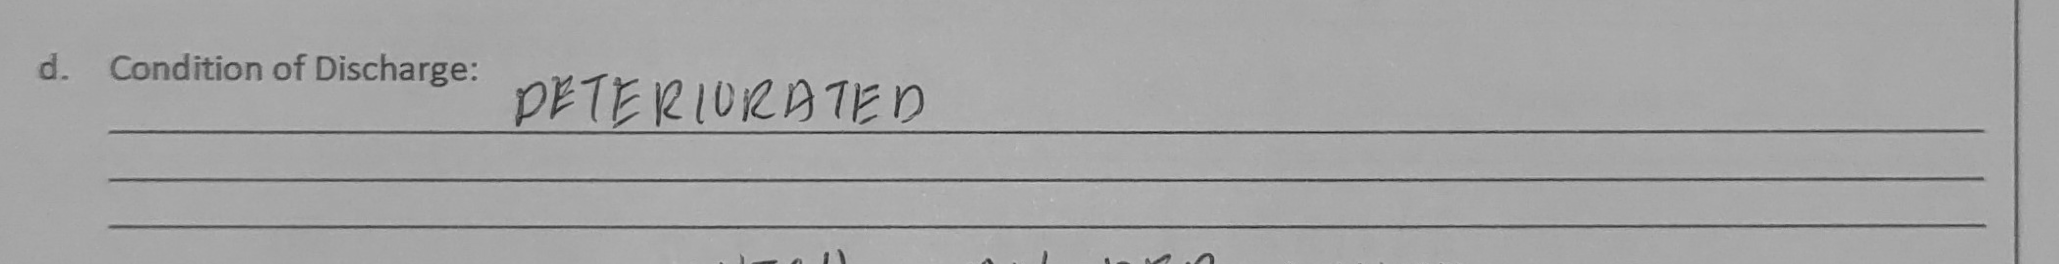 d. Condition of Discharge: DETERIORATED